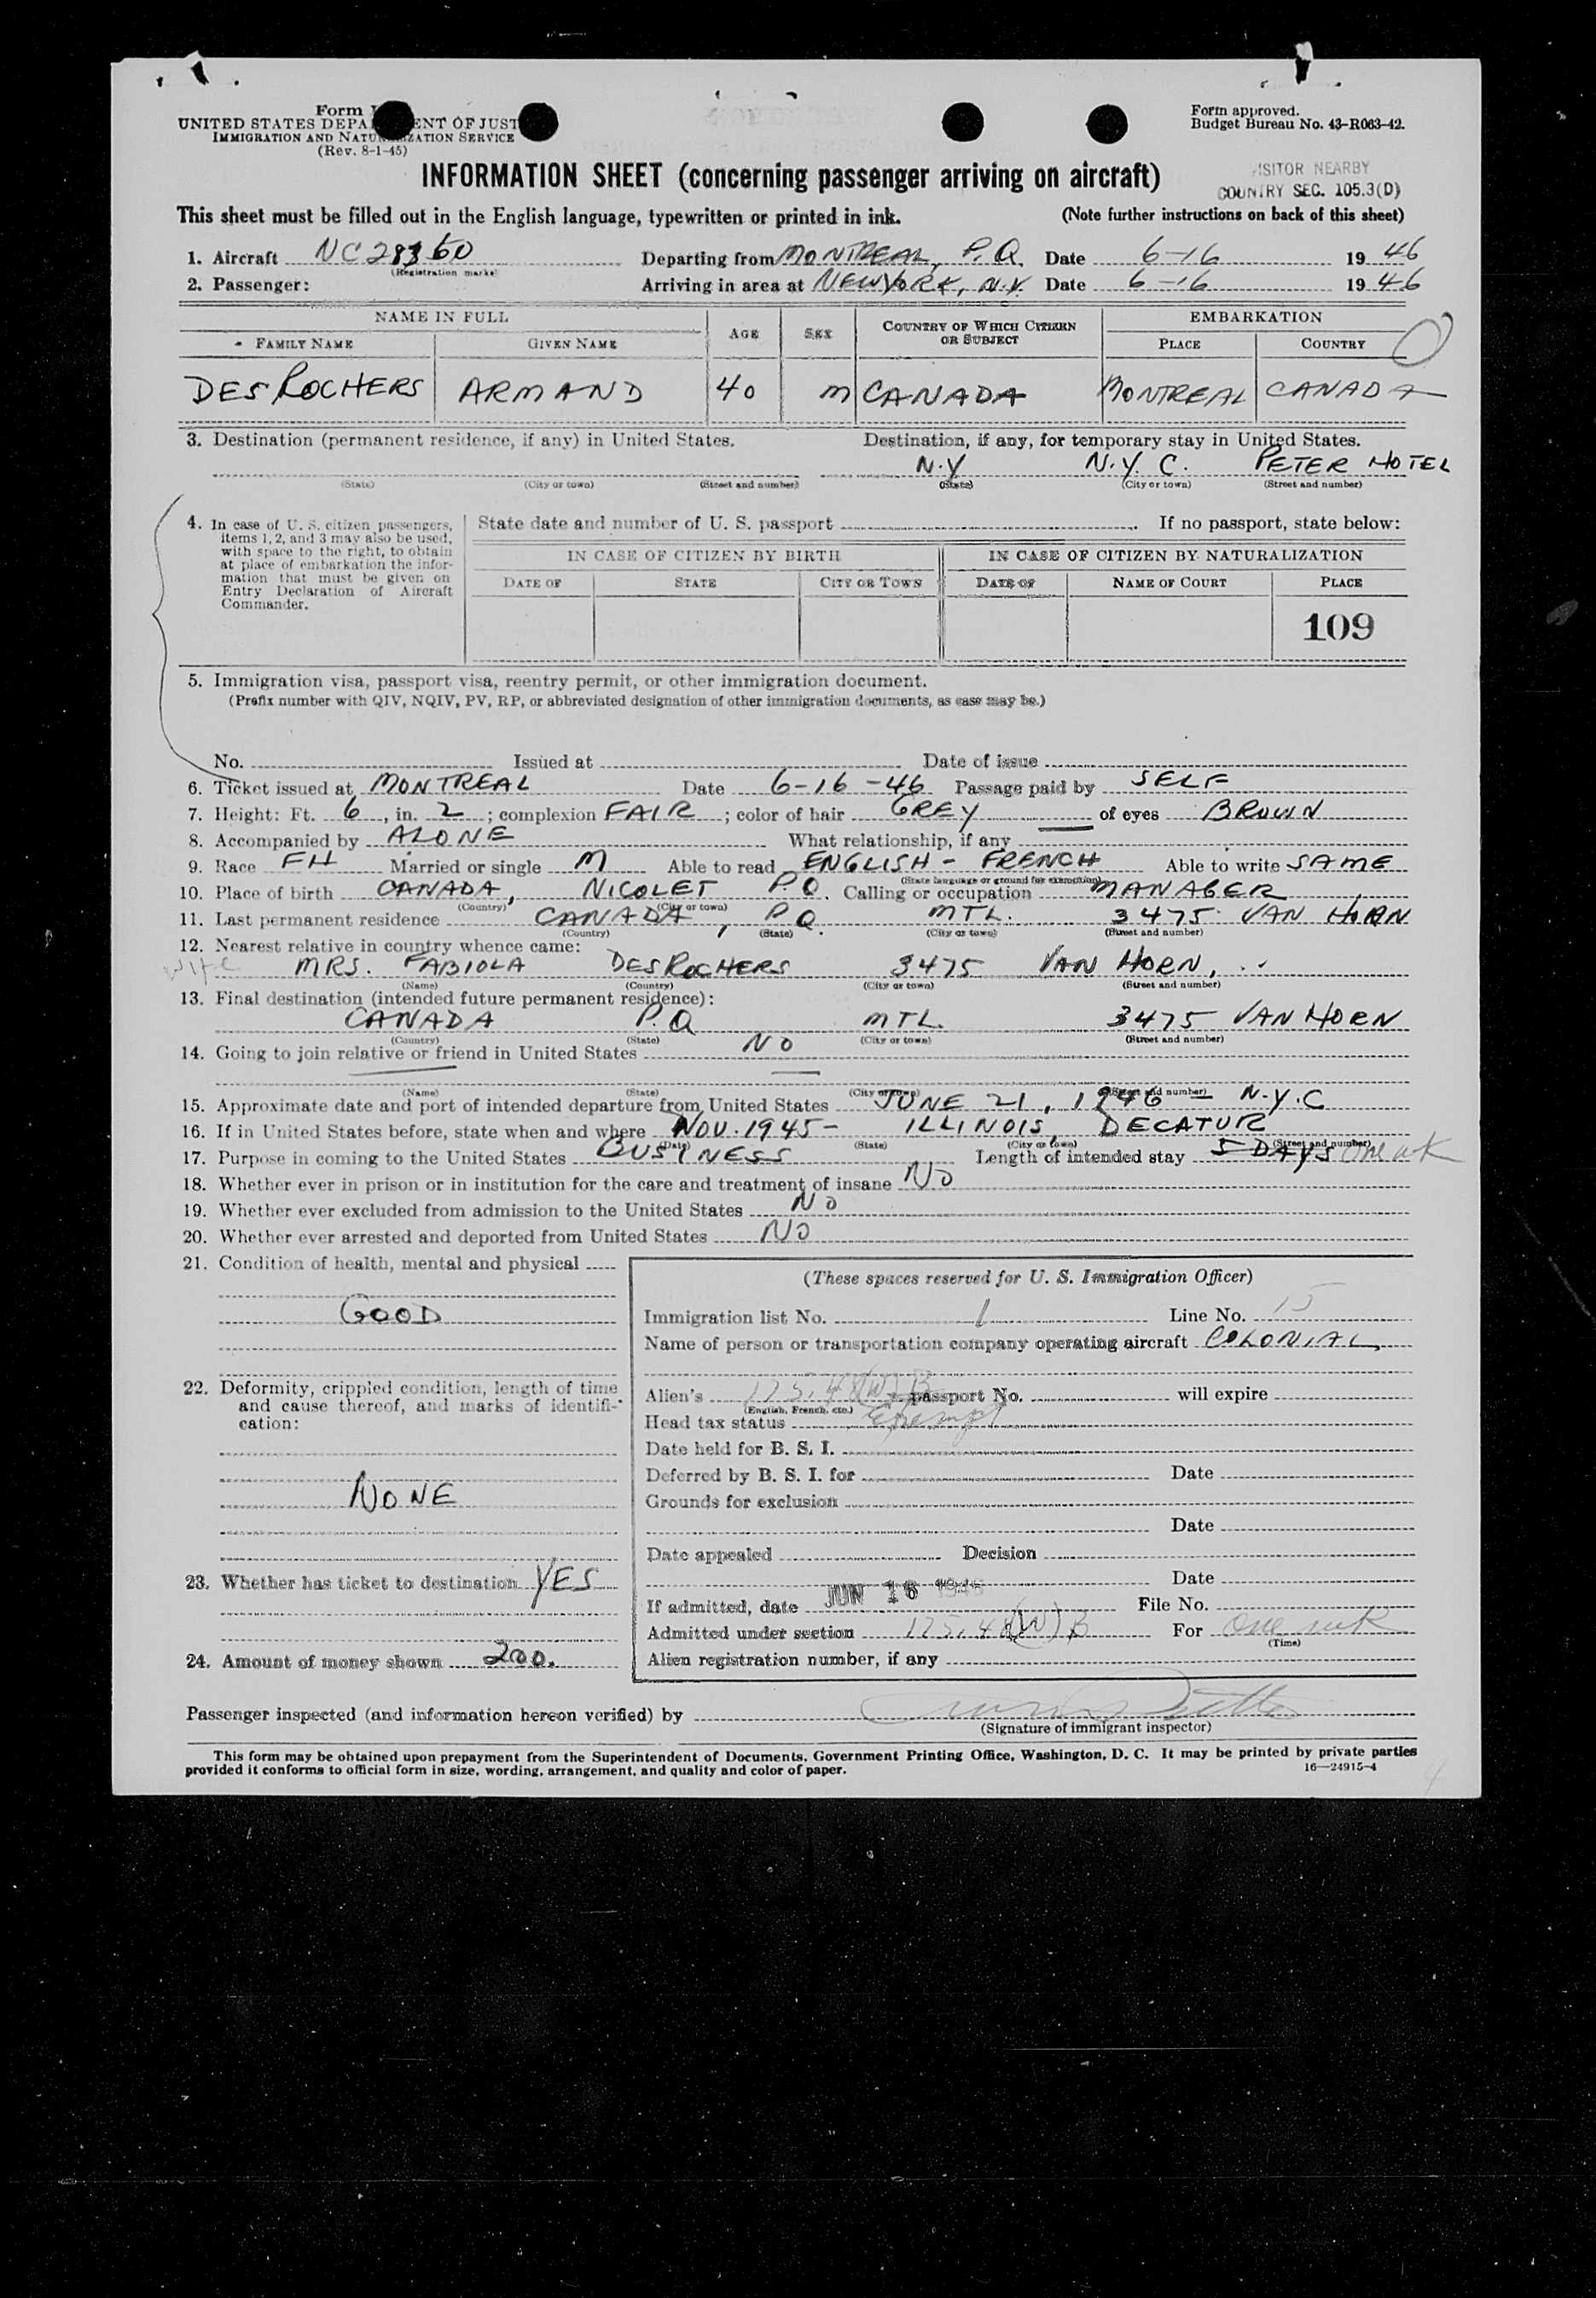 Form
UNITED STATES DEPA ENT OF JUST
IMMIGRATION AND NATU ZATION SERVICE
(Rev. 8-1-45)
Form approved.
Budget Bureau No. 43-R063-42.
INFORMATION SHEET (concerning passenger arriving on aircraft)
ISITOR NEARBY
COUNTRY SEC. 105.3(D)
This sheet must be filled out in the English language, typewritten or printed in ink. (Note further instructions on back of this sheet)
1. Aircraft NC 28350 Departing from MONTREAL, P.Q. Date 6-16 1946
(Registration marks)
2. Passenger: Arriving in area at NEW YORK, N.Y. Date 6-16 1946
NAME IN FULL AGE SEX COUNTRY OF WHICH CITIZEN OR SUBJECT EMBARKATION
FAMILY NAME GIVEN NAME PLACE COUNTRY
DESROCHERS ARMAND 40 M CANADA MONTREAL CANADA
3. Destination (permanent residence, if any) in United States. Destination, if any, for temporary stay in United States.
N.Y N.Y.C. PETER HOTEL
(State) (City or town) (Street and number) (State) (City or town) (Street and number)
4. In case of U. S. citizen passengers, items 1, 2, and 3 may also be used, with space to the right, to obtain at place of embarkation the information that must be given on Entry Declaration of Aircraft Commander.
State date and number of U. S. passport If no passport, state below:
IN CASE OF CITIZEN BY BIRTH IN CASE OF CITIZEN BY NATURALIZATION
DATE OF STATE CITY OR TOWN DATE OF NAME OF COURT PLACE
109
5. Immigration visa, passport visa, reentry permit, or other immigration document.
(Prefix number with QIV, NQIV, PV, RP, or abbreviated designation of other immigration documents, as case may be.)
No. Issued at Date of issue
6. Ticket issued at MONTREAL Date 6-16-46 Passage paid by SELF
7. Height: Ft. 6, in. 2; complexion FAIR; color of hair GREY of eyes BROWN
8. Accompanied by ALONE What relationship, if any
9. Race FH Married or single M Able to read ENGLISH - FRENCH Able to write SAME
(State language or ground for exemption)
10. Place of birth CANADA, NICOLET P.Q. Calling or occupation MANAGER
(Country) (City or town)
11. Last permanent residence CANADA, P.Q. MTL. 3475 VAN HORN
(Country) (State) (City or town) (Street and number)
12. Nearest relative in country whence came:
wife MRS. FABIOLA DESROCHERS 3475 VAN HORN,
(Name) (Country) (City or town) (Street and number)
13. Final destination (intended future permanent residence):
CANADA P.Q MTL. 3475 VAN HORN
(Country) (State) (City or town) (Street and number)
14. Going to join relative or friend in United States NO
(Name) (State) (City or town) (Street and number)
15. Approximate date and port of intended departure from United States JUNE 21, 1946 - N.Y.C
16. If in United States before, state when and where NOV. 1945- ILLINOIS, DECATUR
(Date) (State) (City or town) (Street and number)
17. Purpose in coming to the United States BUSINESS Length of intended stay 5 DAYS One wk
18. Whether ever in prison or in institution for the care and treatment of insane NO
19. Whether ever excluded from admission to the United States NO
20. Whether ever arrested and deported from United States NO
21. Condition of health, mental and physical
GOOD
22. Deformity, crippled condition, length of time and cause thereof, and marks of identification:
NONE
23. Whether has ticket to destination YES
24. Amount of money shown 200.
(These spaces reserved for U. S. Immigration Officer)
Immigration list No. 1 Line No. 15
Name of person or transportation company operating aircraft COLONIAL
Alien's 175.48(W) B passport No. will expire
(English, French, etc.)
Head tax status Exempt
Date held for B. S. I.
Deferred by B. S. I. for Date
Grounds for exclusion
Date
Date appealed Decision
Date
If admitted, date JUN 16 1946 File No.
Admitted under section 175.48(W) B For One wk
(Time)
Alien registration number, if any
Passenger inspected (and information hereon verified) by
(Signature of immigrant inspector)
This form may be obtained upon prepayment from the Superintendent of Documents, Government Printing Office, Washington, D. C. It may be printed by private parties
provided it conforms to official form in size, wording, arrangement, and quality and color of paper.
16—24915-4